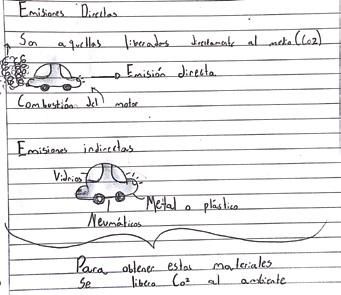 Emisiones Directas
Son aquellas liberadas directamente al medio (Co2)
Emisión directa
Combustión del motor
Emisiones indirectas
Vidrios
Metal o plástico
Neumáticos
Para obtener estos materiales
Se libera Co² al ambiente